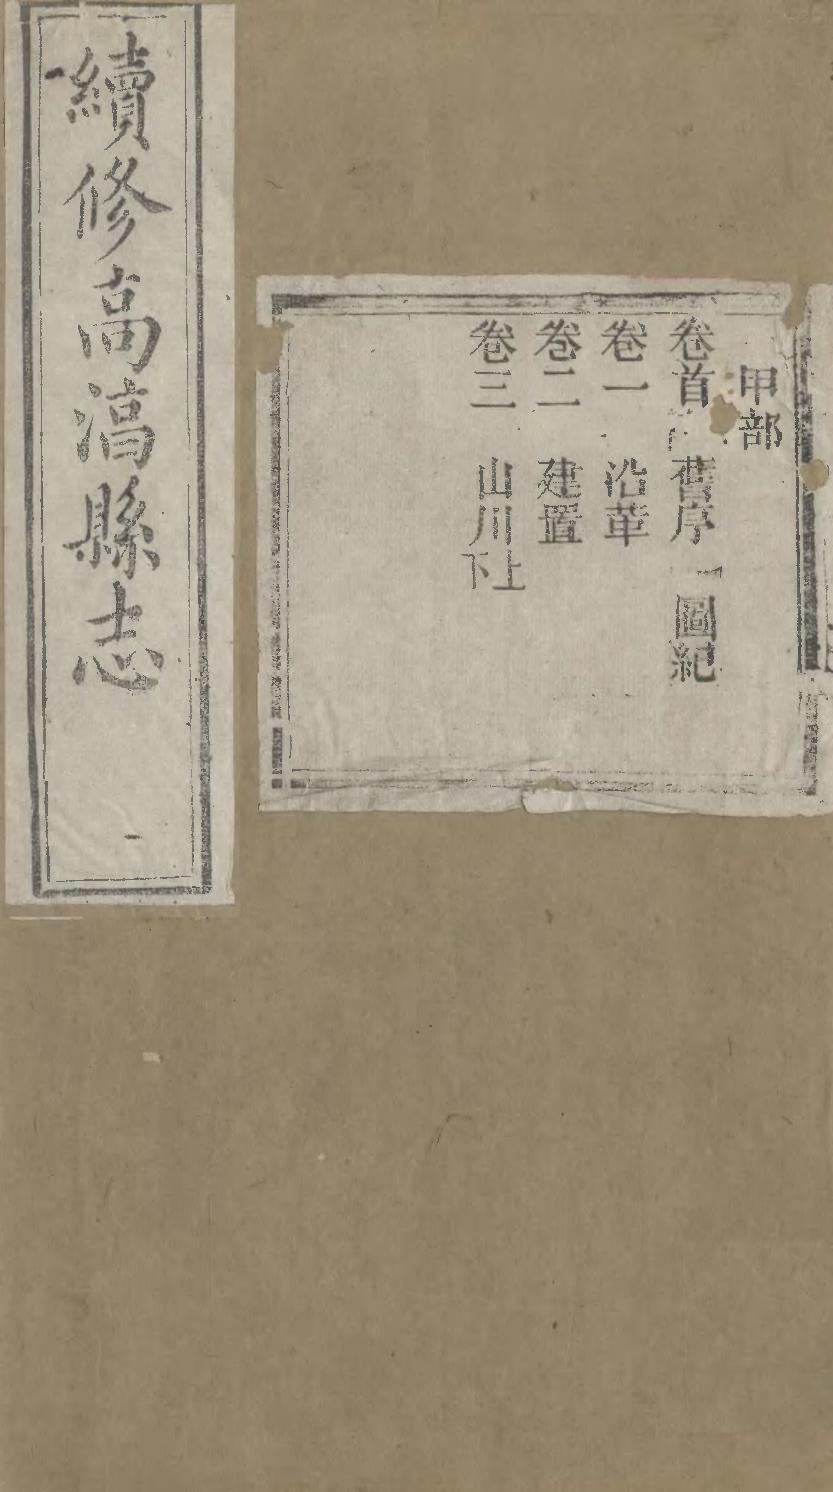 續修高淳縣志
甲部
卷首 舊序 圖紀
卷一 沿革
卷二 建置
卷三 山川上下